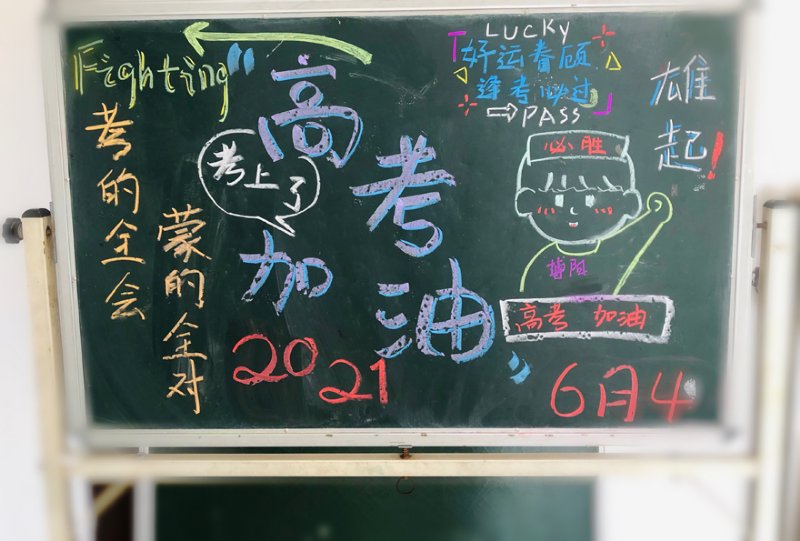 Fighting
考的全会
蒙的全对
高考
加油
考上了
2021
LUCKY
好运眷顾
逢考必过
PASS
雄起！
必胜
高考 加油
6月4